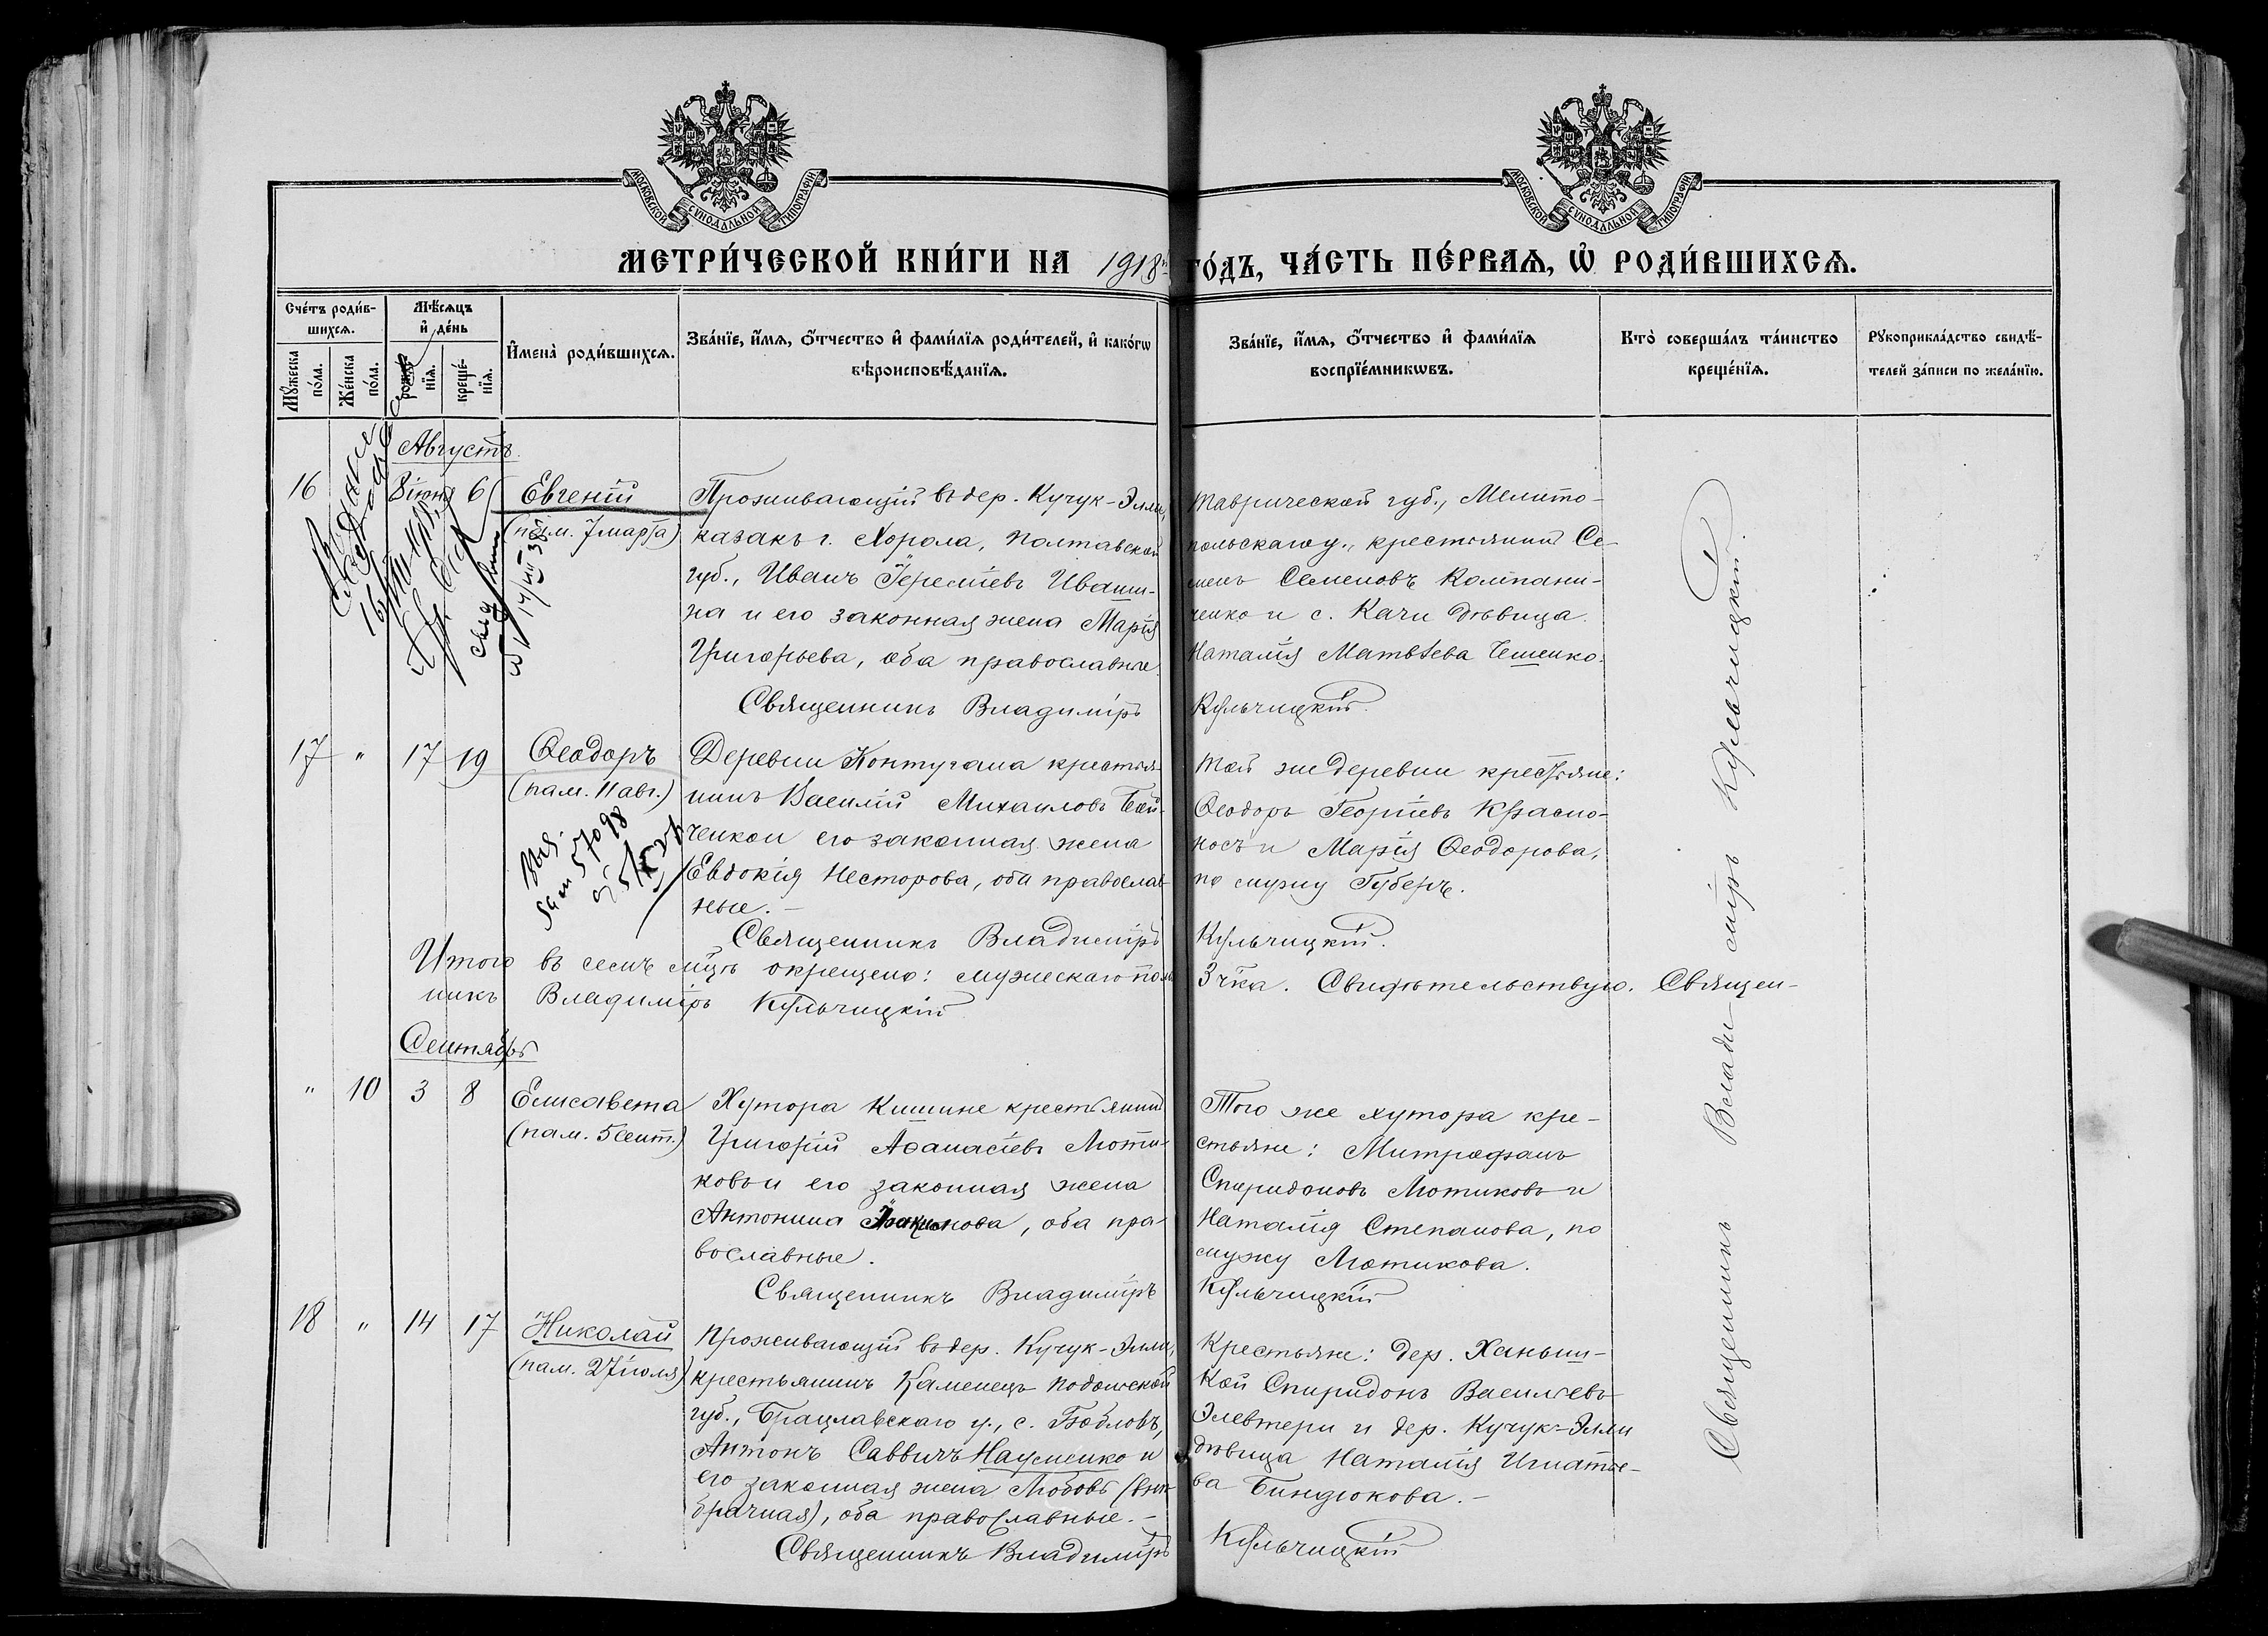 МОСКОВСКОЙ СѴНОДАЛЬНОЙ ТИПОГРАФІИ
МОСКОВСКОЙ СѴНОДАЛЬНОЙ ТИПОГРАФІИ
МЕТРИ́ЧЕСКОЙ КНИ́ГИ НА 1918й ГО́ДЪ, ЧА́СТЬ ПЕ́РВАѦ, Ѡ҆ РОДИ́ВШИХСѦ.
Сче́тъ роди́в-
шихсѧ.
Мꙋ́жеска по́ла.
Же́нска по́ла.
Мѣ́сѧцъ
и҆ де́нь
рожде́-
нїѧ.
креще́-
нїѧ.
И҆мена̀ роди́вшихсѧ.
Зва́нїе, и҆́мѧ, ѻ҆́тчество и҆ фами́лїѧ роди́телей, и҆ како́гѡ
вѣроисповѣ́данїѧ.
Зва́нїе, и҆́мѧ, ѻ҆́тчество и҆ фами́лїѧ
воспрїе́мникѡвъ.
Кто̀ соверша́лъ та́инство
креще́нїѧ.
Рꙋкоприкла́дство свидѣ́-
телей за́писи по жела́нїю.
Августъ.
16
8 іюня 6
Евгеній
(пам. 7 марта)
Проживающій въ дер. Кучук-Элли,
казакъ г. Хорола, Полтавской
губ., Иванъ Іереміевъ Иваши-
на и его законная жена Марія
Григорьева, оба православные.
Священникъ Владиміръ
Таврической губ., Мелито-
польскаго у., крестьянинъ Се-
менъ Семеновъ Компани-
ченко и с. Качи дѣвица
Наталія Матвѣева Чешенко.
Кульчицкій.
17 " 17 19
Ѳеодоръ
(пам. 11 авг.)
Деревни Контугана крестья-
нинъ Василій Михаиловъ Бой-
ченко и его законная жена
Евдокія Несторова, оба православ-
ные. —
Священникъ Владиміръ
Той же деревни крестьяне:
Ѳеодоръ Георгіевъ Красно-
носъ и Марія Ѳеодорова,
по мужу Губеръ.
Кульчицкій.
Итого въ семъ мѣцѣ окрещено: мужескаго пола 3 чка. Свидѣтельствую. Священ-
никъ Владиміръ Кульчицкій
Сентябрь
" 10 3 8
Елисавета
(пам. 5 сент.)
Хутора Кишине крестьянинъ
Григорій Аѳанасіевъ Лоти-
ковъ и его законная жена
Антонина, оба пра-
вославные.
Священникъ Владиміръ
Того же хутора кре-
стьяне: Митрофанъ
Спиридоновъ Лотиковъ и
Наталія Степанова, по
мужу Лотикова.
Кульчицкій
18 " 14 17
Николай
(пам. 27 іюля)
Проживающій въ дер. Кучук-Элли,
крестьянинъ Каменецъ Подольской
губ., Брацлавскаго у., с. Бобловъ,
Антонъ Саввичъ Науменко и
его законная жена Любовь (внѣ-
брачная), оба православные. —
Священникъ Владиміръ
Крестьяне: дер. Ханыш-
кой Спиридонъ Василіевъ
Элевтери и дер. Кучук-Элли
дѣвица Наталія Игнатье-
ва Биндюкова. —
Кульчицкій
Священникъ Владиміръ Кульчицкій.